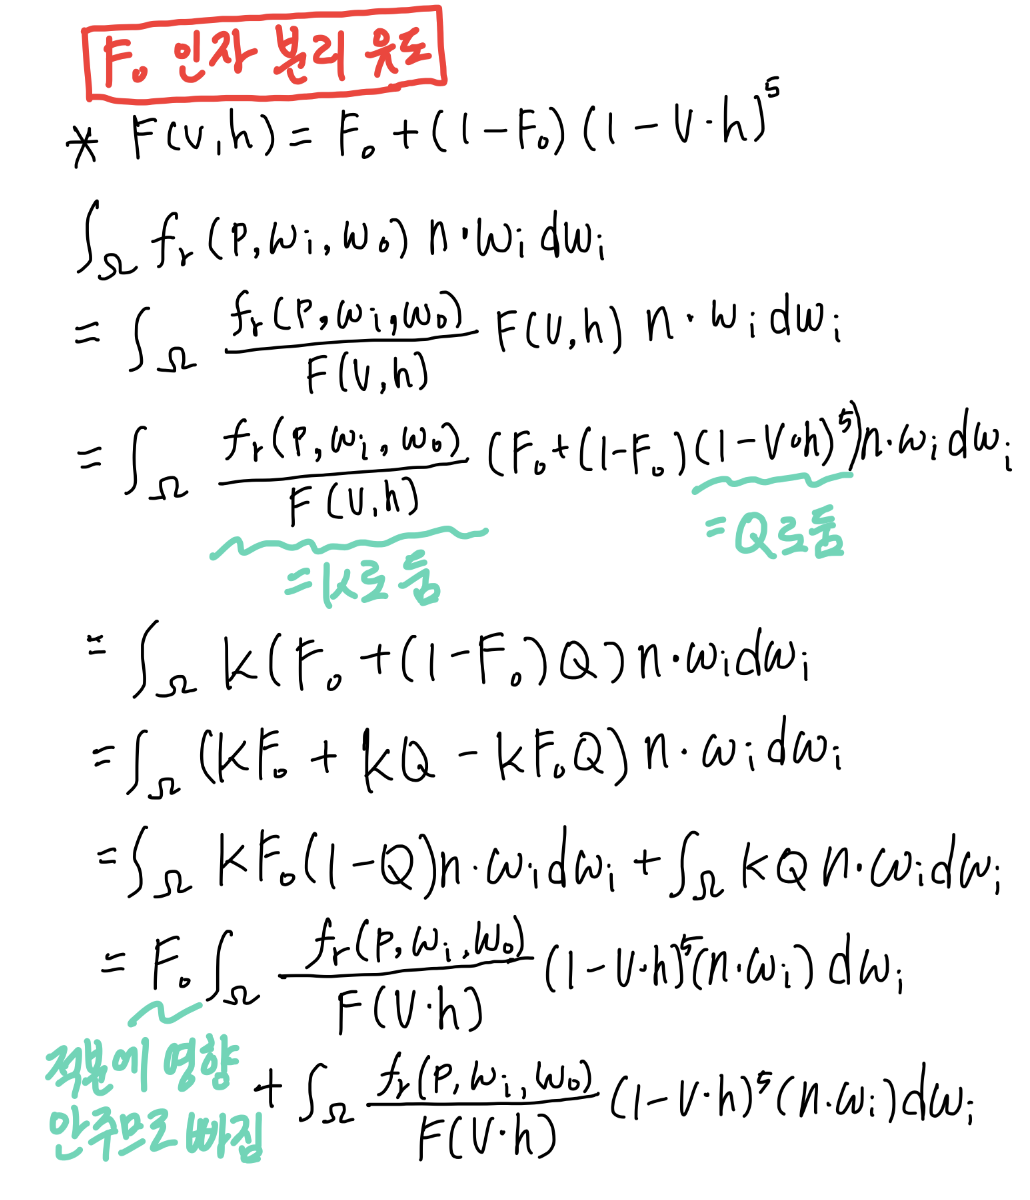 F₀ 인자 분리 윳도
* F(v,h) = F₀ + (1-F₀)(1-V·h)⁵
∫Ω fr(p,ωi,ωo) n·ωi dωi
= ∫Ω fr(p,ωi,ωo)/F(V,h) F(V,h) n·ωi dωi
= ∫Ω fr(p,ωi,ωo)/F(V,h) (F₀+(1-F₀)(1-V·h)⁵)n·ωi dωi
=Q로둠
=k로둠
= ∫Ω k(F₀+(1-F₀)Q)n·ωidωi
= ∫Ω (kF₀ + kQ - kF₀Q) n·ωi dωi
= ∫Ω kF₀(1-Q)n·ωidωi + ∫Ω kQ n·ωidωi
= F₀ ∫Ω fr(p,ωi,ωo)/F(V·h) (1-V·h)⁵(n·ωi)dωi
적분에 영향
+ ∫Ω fr(p,ωi,ωo)/F(V·h) (1-V·h)⁵(n·ωi)dωi
안주므로 빠짐